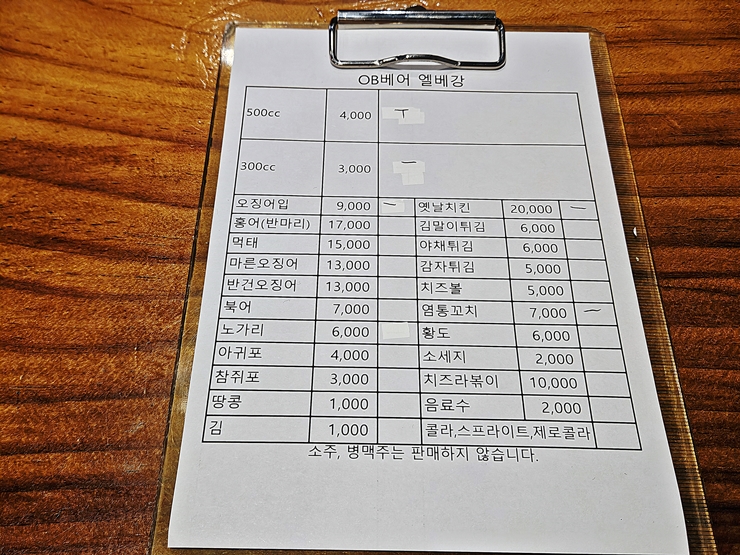 OB베어 엘베강
500cc 4,000 ㅜ
300cc 3,000 ㅡ
오징어입 9,000 ㅡ 옛날치킨 20,000 ㅡ
홍어(반마리) 17,000 김말이튀김 6,000
먹태 15,000 야채튀김 6,000
마른오징어 13,000 감자튀김 5,000
반건오징어 13,000 치즈볼 5,000
북어 7,000 염통꼬치 7,000 ㅡ
노가리 6,000 황도 6,000
아귀포 4,000 소세지 2,000
참쥐포 3,000 치즈라볶이 10,000
땅콩 1,000 음료수 2,000
김 1,000 콜라,스프라이트,제로콜라
소주, 병맥주는 판매하지 않습니다.